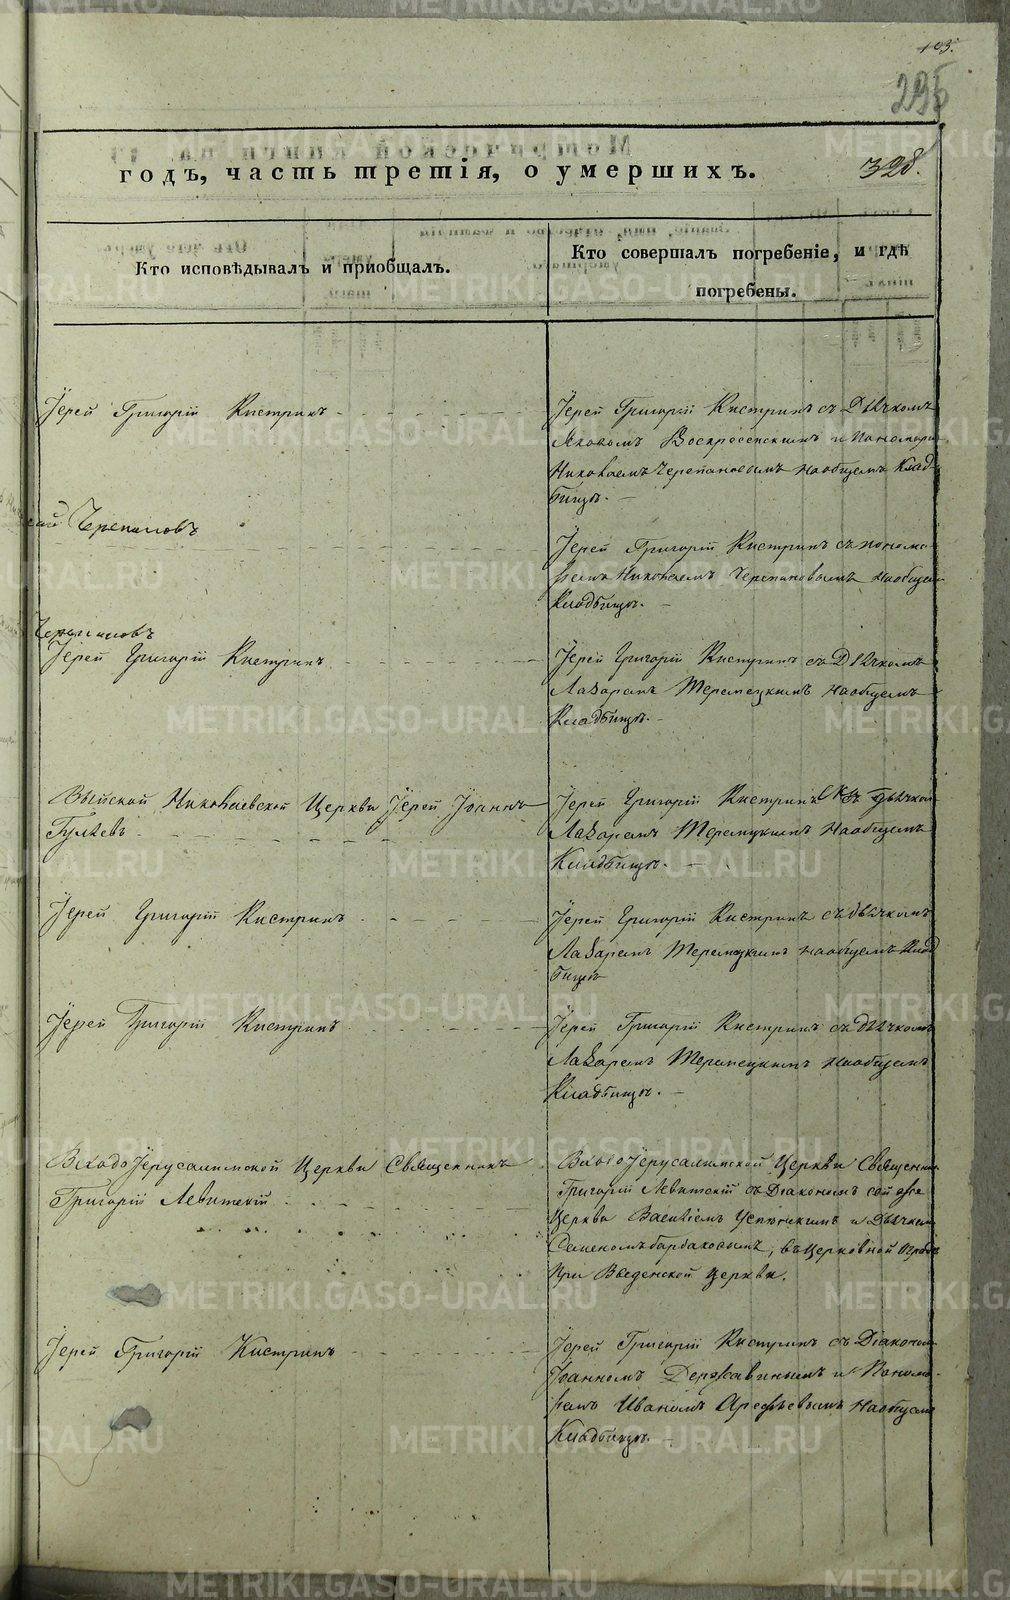 103.
295
годъ, часть третія, о умершихъ.
328.
Кто исповѣдывалъ и пріобщалъ.
Кто совершалъ погребеніе, и гдѣ
погребены.
Іерей Григорій Кистринъ
Іерей Григорій Кистринъ съ Дьячкомъ
Яковомъ Воскресенскимъ и Пономаре
Николаемъ Черепановымъ наобщемъ Клад
бищѣ.
Черепановъ
Іерей Григорій Кистринъ съ понома
ремъ Николаемъ Черепановымъ наобщем
Кладбищѣ.
Черепановъ
Іерей Григорій Кистринъ
Іерей Григорій Кистринъ съ Дьячкомъ
Лазаремъ Теремецкимъ наобщемъ
Кладбищѣ.
Выйской Николаевской Церкви Іерей Іоаннъ
Гуляевъ
Іерей Григорій Кистринъ съ дьячком
Лазаремъ Теремецкимъ наобщемъ
Кладбищѣ.
Іерей Григорій Кистринъ
Іерей Григорій Кистринъ съ дьячкомъ
Лазаремъ Теремецкимъ наобщемъ Клад
бищѣ
Іерей Григорій Кистринъ
Іерей Григорій Кистринъ съ дьячкомъ
Лазаремъ Теремецкимъ наобщемъ
Кладбищѣ.
Входо Іерусалимской Церкви Священникъ
Григорій Левитскій
Входо Іерусалимской Церкви Священни
Григорій Левитскій съ Діакономъ той же
Церкви Василіемъ и Дьячком
Семеномъ Барбаховымъ, въ Церковной оградѣ
при Введенской церкви.
Іерей Григорій Кистринъ
Іерей Григорій Кистринъ съ Діаконом
Іоанномъ Державинымъ и Понома
ремъ Иваномъ Арефьевымъ наобщем
Кладбищѣ.
METRIKI.GASO-URAL.RU